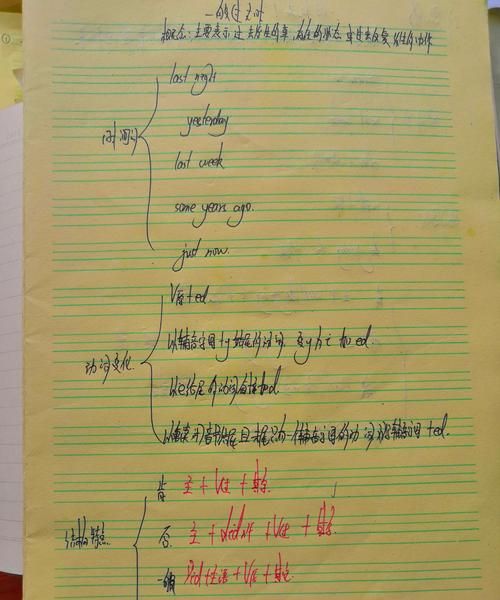 一般过去时
概念：主要表示过去发生的事，存在的状态或过去反复发生的动作
last night
yesterday
时间词
last week
some years ago.
just now.
V原+ed.
以辅音字母+y结尾的动词，变y为i加ed.
动词变化
以e结尾的动词直接+d
以重读闭音节结尾且末尾只有一个辅音字母的动词，双写辅音字母+ed.
肯 主+V过+其它
结构特点
否 主+didn't+V过+其它
一般 Did+主语+V原+其它.